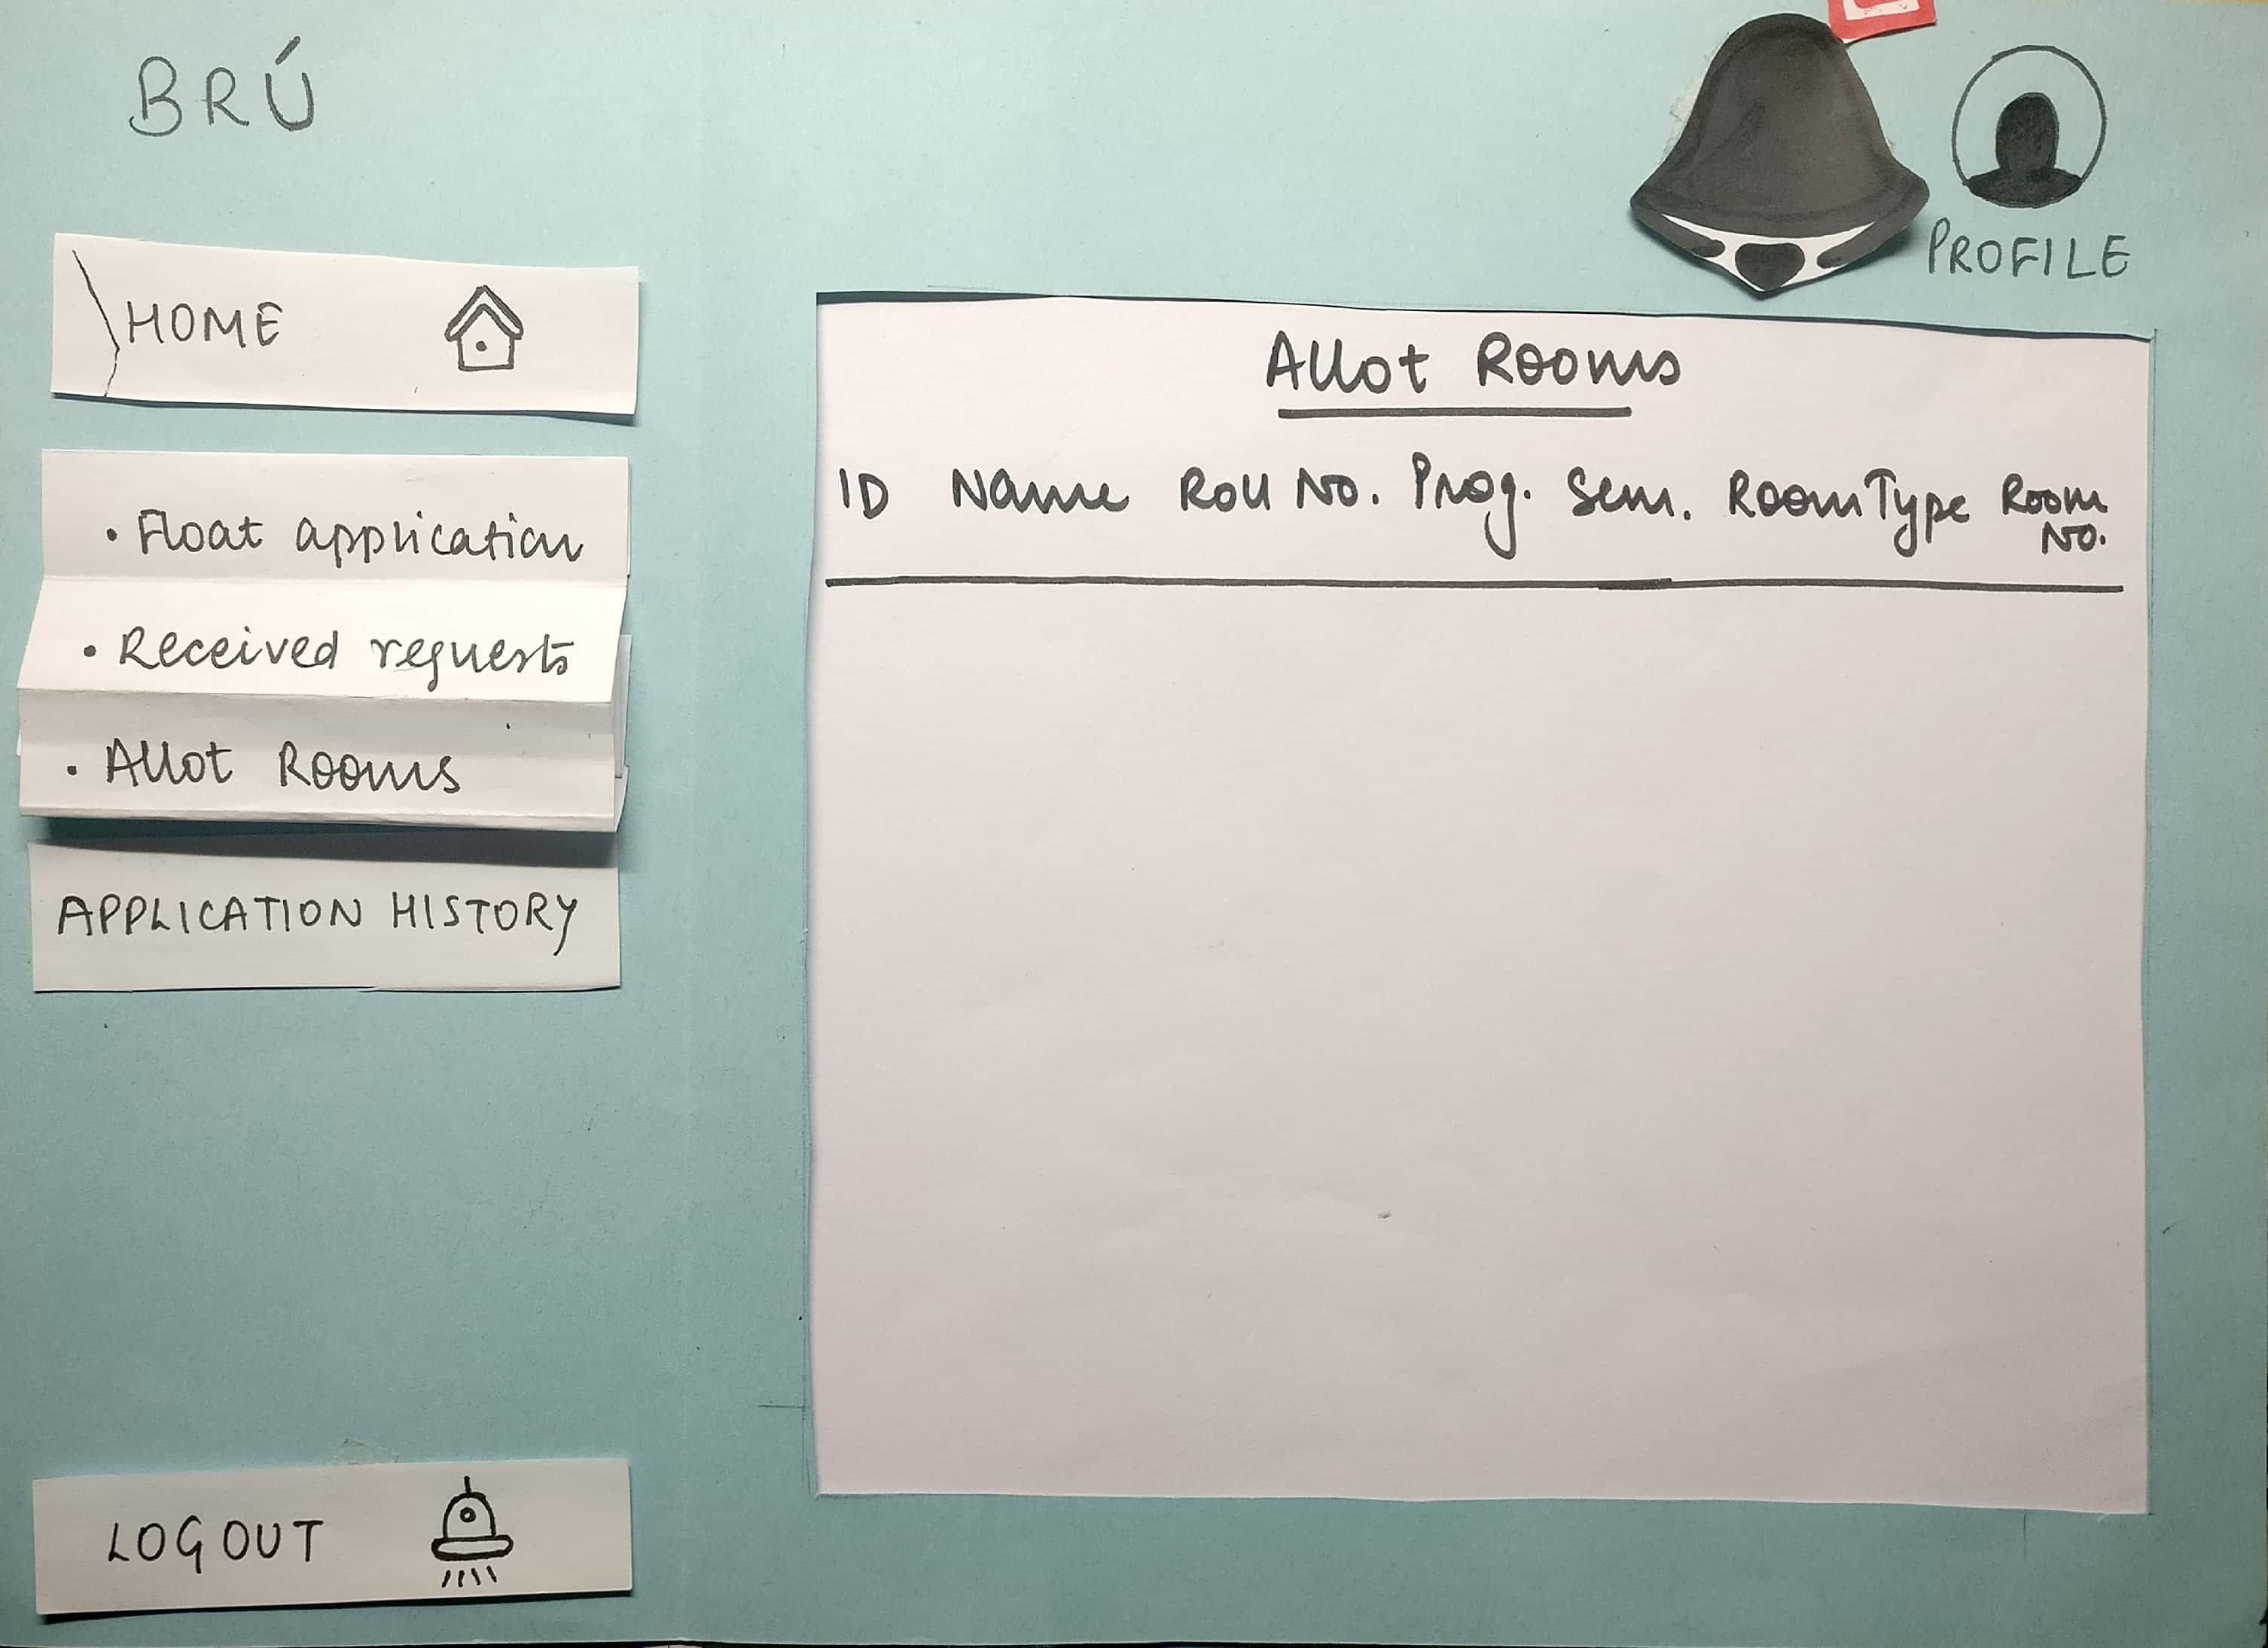 BRÚ
PROFILE
HOME
• Float application
• Received requests
• Allot Rooms
APPLICATION HISTORY
LOGOUT
Allot Rooms
ID Name Roll No. Prog. Sem. Room Type Room No.